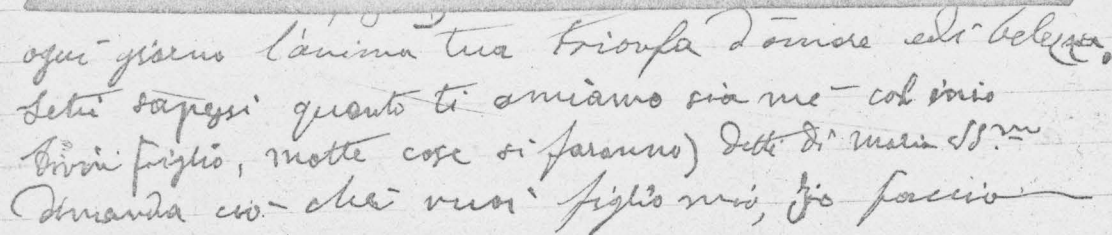 ogni giorno l'anima tua trionfa d'amore edi beleza.
Setù sapessi quanto ti amiamo sia me col mio
Divin figlio, molte cose si faranno) detti di Maria SS.ma
Dimanda ciò che vuoi figlio mio, io faccio